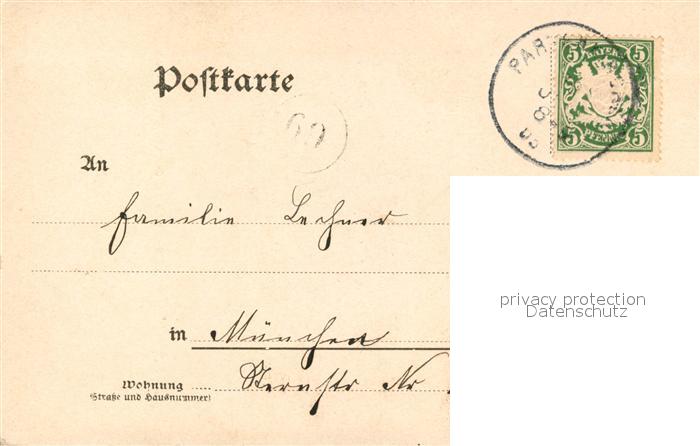 Postkarte
5 BAYERN 5
5 PFENNIG 5
An
Familie Lechner
in München
Wohnung Sternstr Nr
(Straße und Hausnummer)
privacy protection
Datenschutz